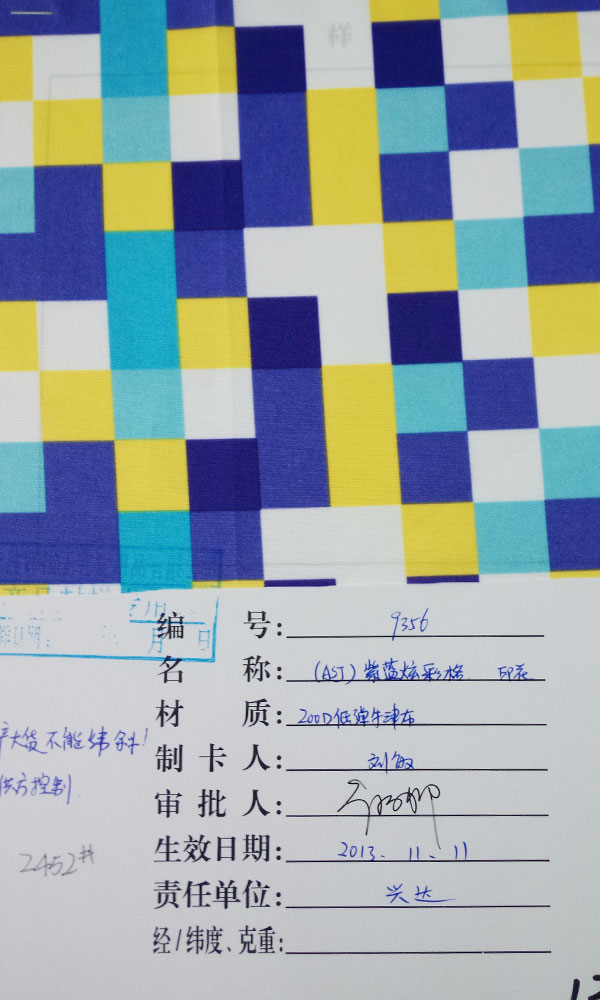 样
专用
月 日
编 号: 9356
名 称: (AST) 紫蓝炫彩格 印花
材 质: 200D低弹牛津布
制 卡 人: 刘敏
审 批 人:
生效日期: 2013.11.11
责任单位: 兴达
经/纬度、克重:
大货不能纬斜!
供方控制
2452#